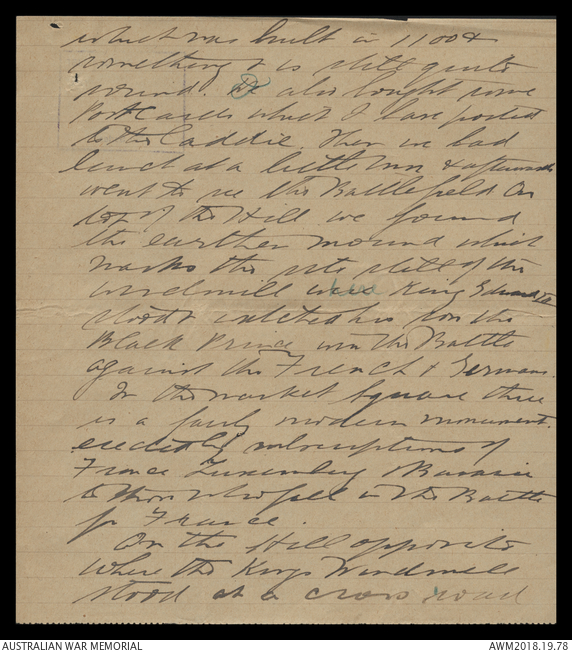 which was built in 1100 &
something & is still quite
sound. We also bought some
Post Cards which I have posted
to the Laddie. Then we had
lunch at a little Inn & afterwards
went to see the Battlefield On
top of the Hill we found
the earthen mound which
marks the site still of the
windmill were King Edward
stood & watched his son the
Black Prince win the Battle
against the French & Germans.
In the market Square there
is a fairly modern monument
erected by subscriptions of
France Luxemburg & Bavaria
to those who fell in the Battle
for France.
On the Hill opposite
where the Kings Windmill
stood at a cross road
AUSTRALIAN WAR MEMORIAL
AWM2018.19.78